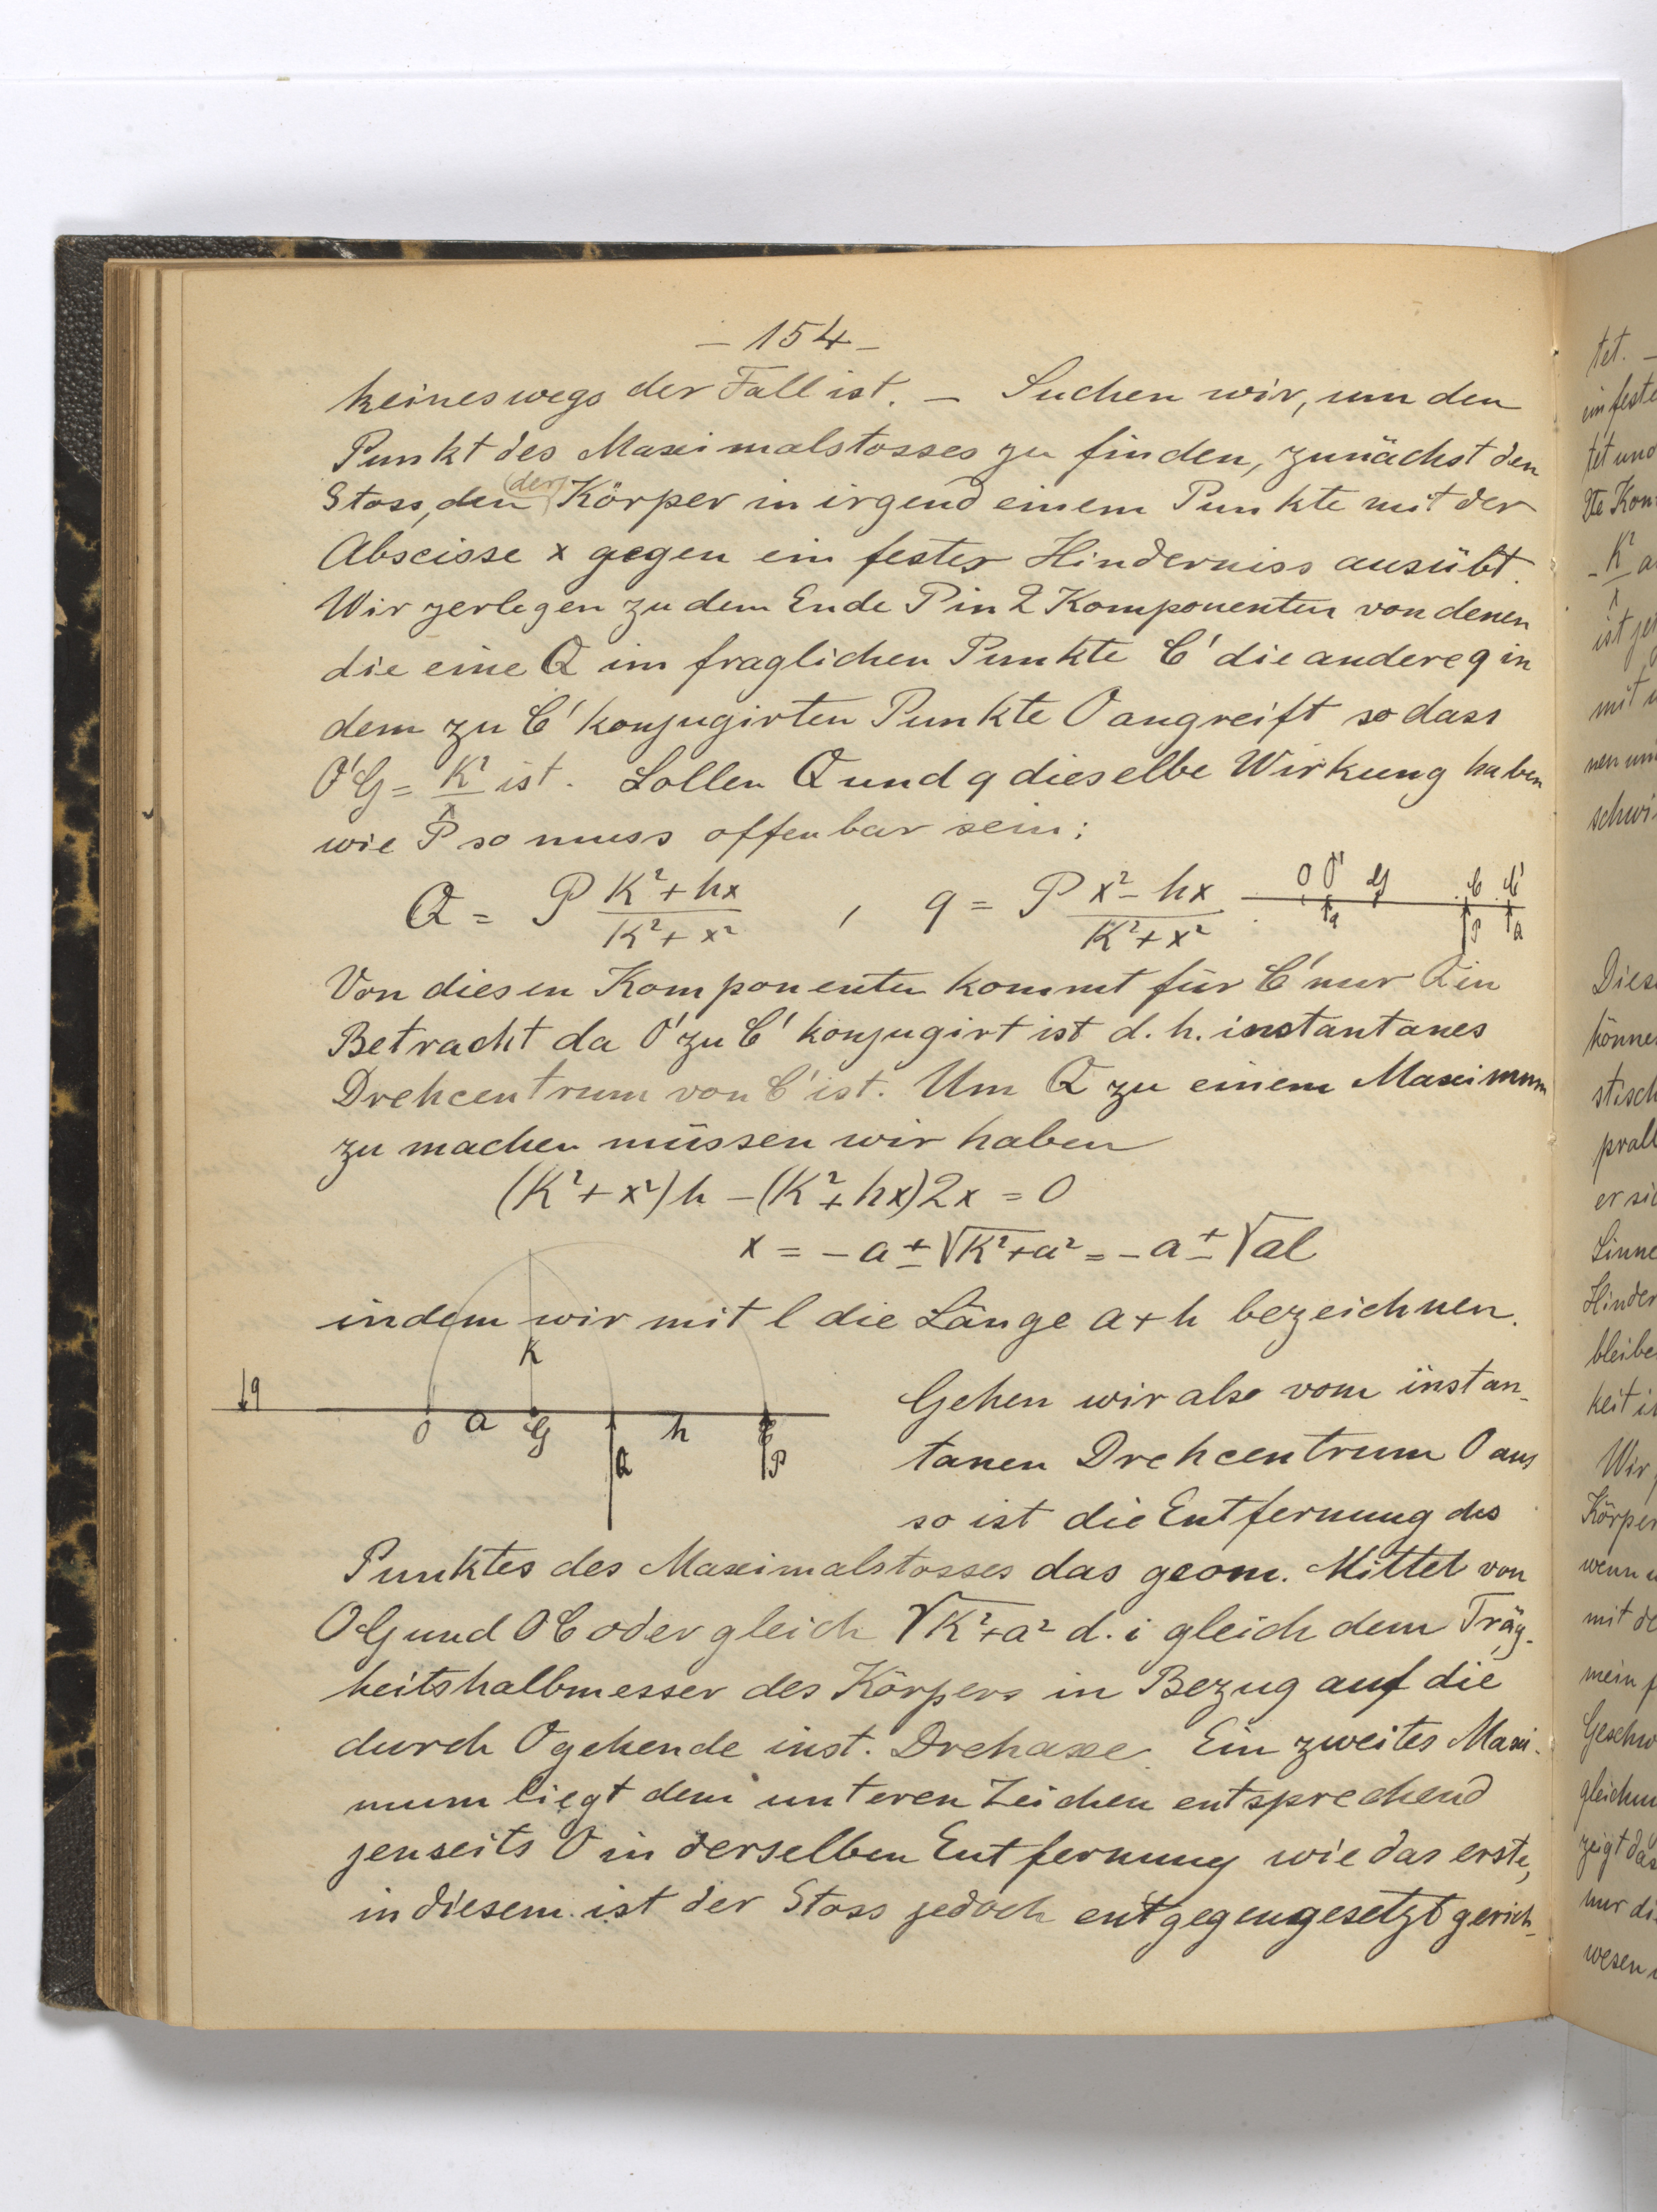 – 154 –
keineswegs der Fall ist. – Suchen wir, um den
Punkt des Maximalstosses zu finden, zunächst den
Stoss, den (der) Körper in irgend einem Punkte mit der
Abscisse x gegen ein festes Hinderniss ausübt.
Wir zerlegen zu dem Ende P in 2 Komponenten von denen
die eine Q im fraglichen Punkte C' die andere q in
dem zu C' konjugirten Punkte O angreift so dass
O'G = K²/x ist. Sollen Q und q dieselbe Wirkung haben
wie P so muss offenbar sein:
Q = P (K² + hx)/(K² + x²) , q = P (x² – hx)/(K² + x²)
O O' G C C'
q P Q
Von diesen Komponenten kommt für C' nur Q in
Betracht da O' zu C' konjugirt ist d. h. instantanes
Drehcentrum von C' ist. Um Q zu einem Maximum
zu machen müssen wir haben
(K² + x²) h – (K² + hx) 2x = 0
x = – a ± √K² + a² = – a ± √al
indem wir mit l die Länge a + h bezeichnen.
K
q
O a G h C
Q P
Gehen wir also vom instan-
tanen Drehcentrum O aus
so ist die Entfernung des
Punktes des Maximalstosses das geom. Mittel von
OG und OC oder gleich √K² + a² d. i gleich dem Träg-
heitshalbmesser des Körpers in Bezug auf die
durch O gehende inst. Drehaxe. Ein zweites Maxi-
mum liegt dem unteren Zeichen entsprechend
jenseits O in derselben Entfernung wie das erste,
in diesem ist der Stoss jedoch entgegengesetzt gerich-
tet. –
ein feste
tet und
2te Kom
– K²/x a
ist je
mit
nen um
schwi
Dies
könne
stisch
prall
er sic
Sinne
Hinder
bleibe
keit i
Wir
Körper
wenn
mit de
mein
Geschw
gleichm
zeigt das
nur di
wesen